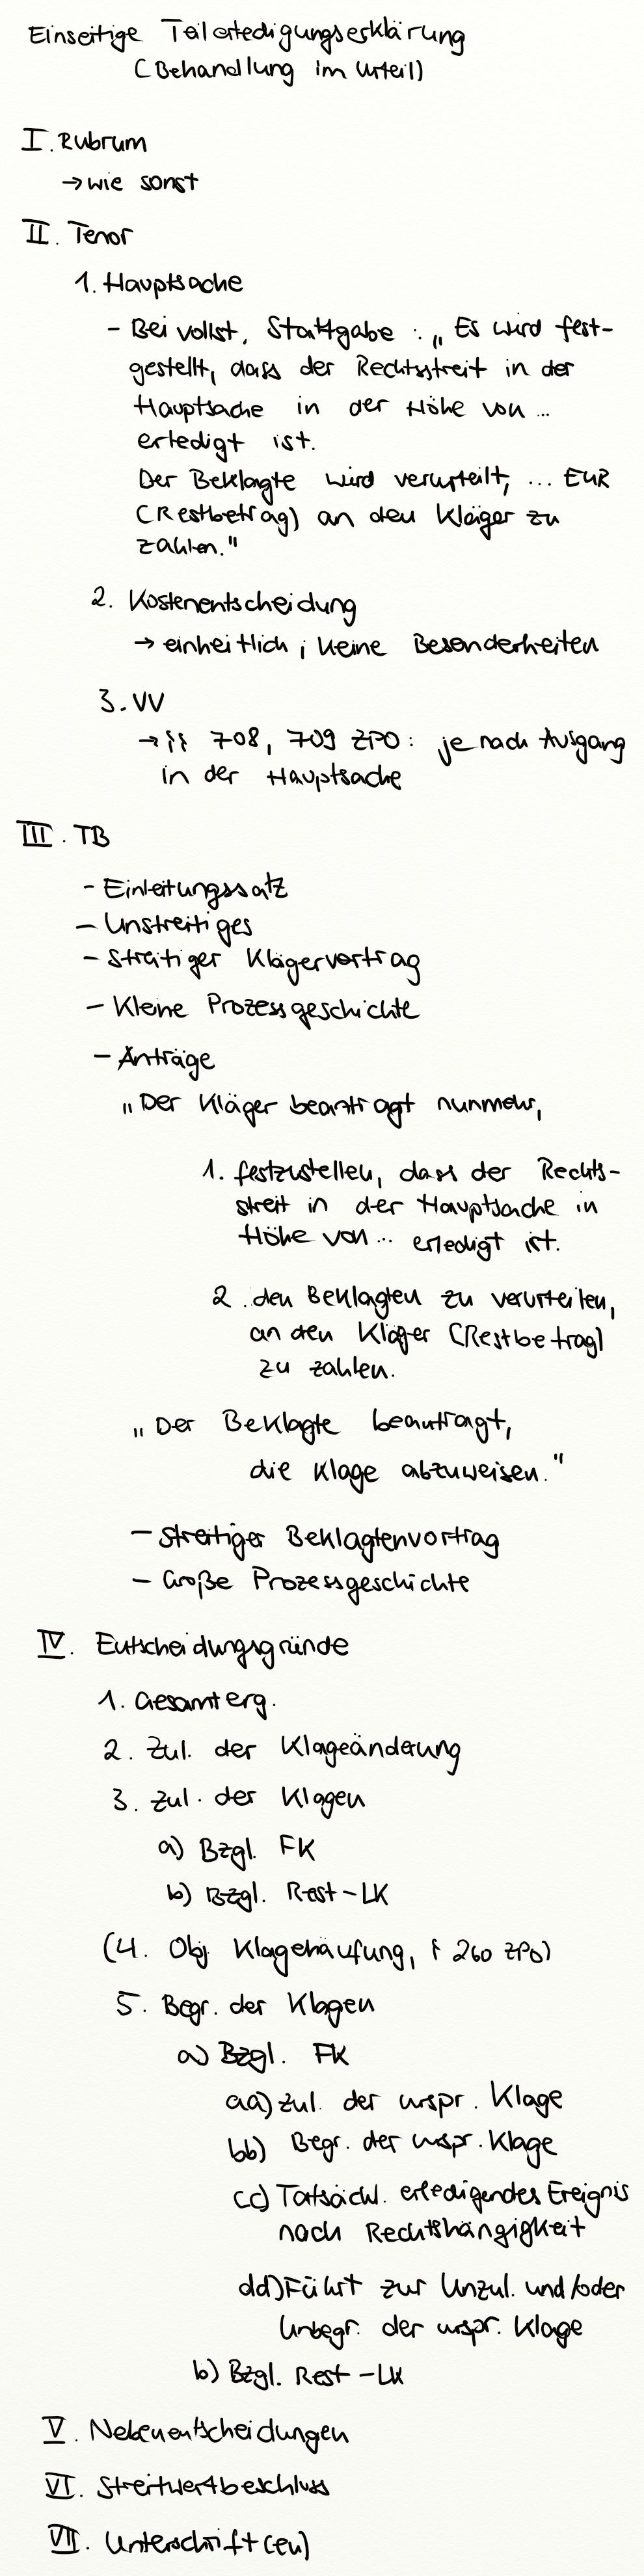 Einseitige Teilerledigungserklärung
(Behandlung im Urteil)
I. Rubrum
→ wie sonst
II. Tenor
1. Hauptsache
- Bei vollst. Stattgabe : „Es wird fest-
gestellt, dass der Rechtsstreit in der
Hauptsache in der Höhe von ...
erledigt ist.
Der Beklagte wird verurteilt, ... EUR
(Restbetrag) an den Kläger zu
zahlen."
2. Kostenentscheidung
→ einheitlich ; keine Besonderheiten
3. VV
→ §§ 708, 709 ZPO: je nach Ausgang
in der Hauptsache
III. TB
- Einleitungssatz
- Unstreitiges
- Streitiger Klägervortrag
- Kleine Prozessgeschichte
- Anträge
„Der Kläger beantragt nunmehr,
1. festzustellen, dass der Rechts-
streit in der Hauptsache in
Höhe von ... erledigt ist.
2. den Beklagten zu verurteilen,
an den Kläger (Restbetrag)
zu zahlen.
„Der Beklagte beantragt,
die Klage abzuweisen."
- Streitiger Beklagtenvortrag
- Große Prozessgeschichte
IV. Entscheidungsgründe
1. Gesamterg.
2. Zul. der Klageänderung
3. Zul. der Klagen
a) Bzgl. FK
b) Bzgl. Rest-LK
(4. Obj. Klagehäufung, § 260 ZPO)
5. Begr. der Klagen
a) Bzgl. FK
aa) Zul. der urspr. Klage
bb) Begr. der urspr. Klage
cc) Tatsächl. erledigendes Ereignis
nach Rechtshängigkeit
dd) Führt zur Unzul. und/oder
Unbegr. der urspr. Klage
b) Bzgl. Rest-LK
V. Nebenentscheidungen
VI. Streitwertbeschluss
VII. Unterschrift(en)